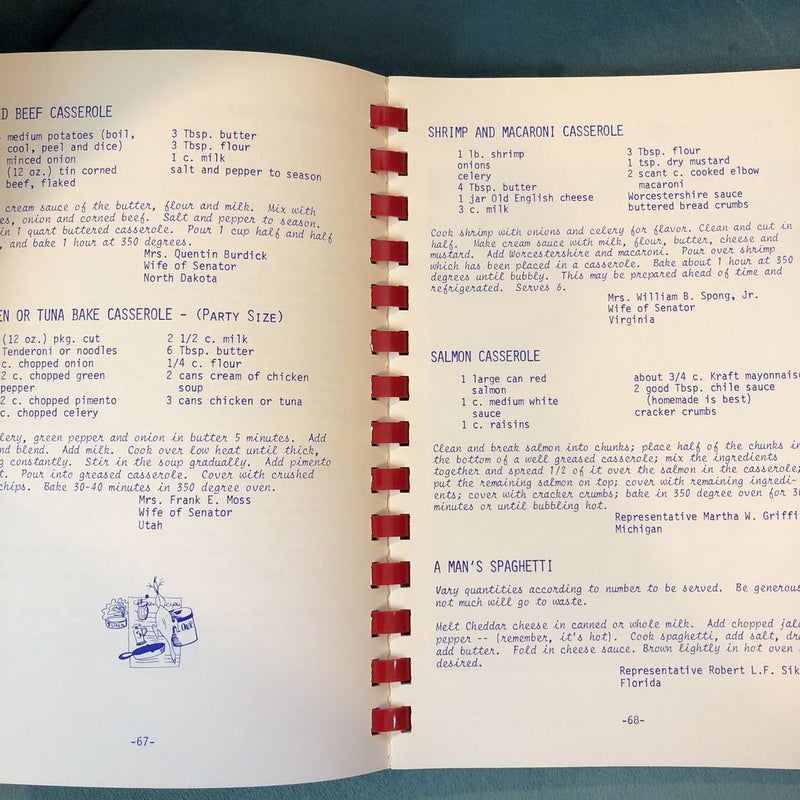 D BEEF CASSEROLE
medium potatoes (boil,
cool, peel and dice)
minced onion
(12 oz.) tin corned
beef, flaked
3 Tbsp. butter
3 Tbsp. flour
1 c. milk
salt and pepper to season
cream sauce of the butter, flour and milk. Mix with
es, onion and corned beef. Salt and pepper to season.
in 1 quart buttered casserole. Pour 1 cup half and half
, and bake 1 hour at 350 degrees.
Mrs. Quentin Burdick
Wife of Senator
North Dakota
EN OR TUNA BAKE CASSEROLE - (PARTY SIZE)
(12 oz.) pkg. cut
Tenderoni or noodles
c. chopped onion
2 c. chopped green
pepper
2 c. chopped pimento
c. chopped celery
2 1/2 c. milk
6 Tbsp. butter
1/4 c. flour
2 cans cream of chicken
soup
3 cans chicken or tuna
lery, green pepper and onion in butter 5 minutes. Add
nd blend. Add milk. Cook over low heat until thick,
g constantly. Stir in the soup gradually. Add pimento
t. Pour into greased casserole. Cover with crushed
chips. Bake 30-40 minutes in 350 degree oven.
Mrs. Frank E. Moss
Wife of Senator
Utah
-67-
SHRIMP AND MACARONI CASSEROLE
1 lb. shrimp
onions
celery
4 Tbsp. butter
1 jar Old English cheese
3 c. milk
3 Tbsp. flour
1 tsp. dry mustard
2 scant c. cooked elbow
macaroni
Worcestershire sauce
buttered bread crumbs
Cook shrimp with onions and celery for flavor. Clean and cut in
half. Make cream sauce with milk, flour, butter, cheese and
mustard. Add Worcestershire and macaroni. Pour over shrimp
which has been placed in a casserole. Bake about 1 hour at 350
degrees until bubbly. This may be prepared ahead of time and
refrigerated. Serves 6.
Mrs. William B. Spong, Jr.
Wife of Senator
Virginia
SALMON CASSEROLE
1 large can red
salmon
1 c. medium white
sauce
1 c. raisins
about 3/4 c. Kraft mayonnaise
2 good Tbsp. chile sauce
(homemade is best)
cracker crumbs
Clean and break salmon into chunks; place half of the chunks in
the bottom of a well greased casserole; mix the ingredients
together and spread 1/2 of it over the salmon in the casserole;
put the remaining salmon on top; cover with remaining ingredi-
ents; cover with cracker crumbs; bake in 350 degree oven for 3
minutes or until bubbling hot.
Representative Martha W. Griffi
Michigan
A MAN'S SPAGHETTI
Vary quantities according to number to be served. Be generous
not much will go to waste.
Melt Cheddar cheese in canned or whole milk. Add chopped jala
pepper -- (remember, it's hot). Cook spaghetti, add salt, dra
add butter. Fold in cheese sauce. Brown lightly in hot oven
desired.
Representative Robert L.F. Sik
Florida
-68-